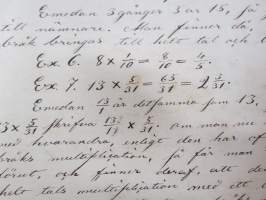 Emedan 3 gånger 5 är 15, så
till nämnare. Man finner då,
bråk bringas till helt tal och b
Ex. 6. 8 × 1/10 = 8/10 = 4/5.
Ex. 7. 13 × 5/31 = 65/31 = 2 3/31.
Emedan 13/1 är detsamma som 13,
13 × 5/31 skrifva 13/1 × 5/31. am man nu
med hvarandra, enligt den har af
bråks multiplikation, så får man
förut, och finner deraf, att de
helt tals multiplikation med ett b